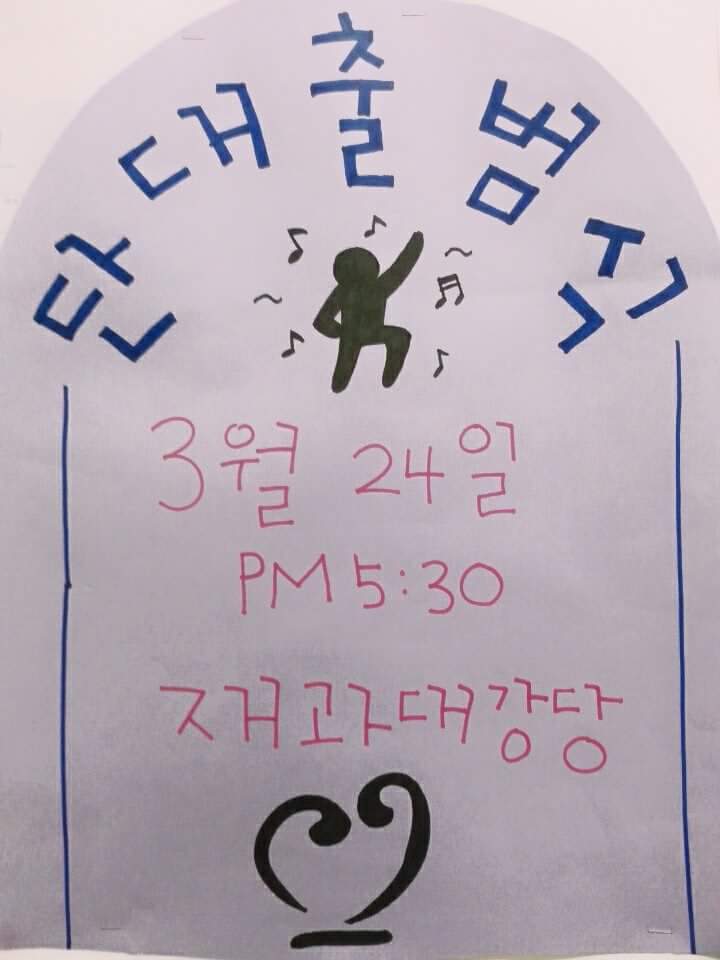 단대출범식
3월 24일
PM 5:30
재과대강당